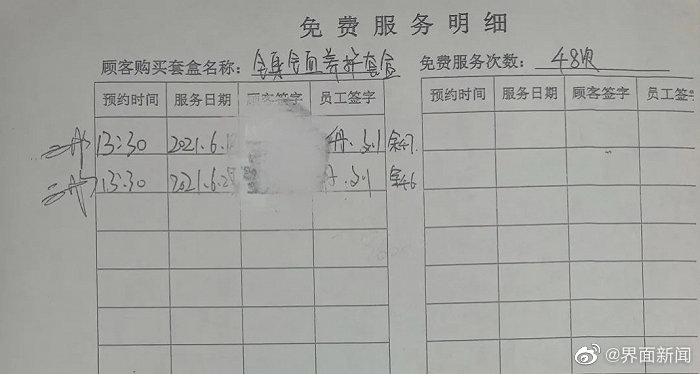 免费服务明细
顾客购买套盒名称: 面养护套盒 免费服务次数: 48次
预约时间 服务日期 顾客签字 员工签字 预约时间 服务日期 顾客签字 员工签字
13:30 2021.6. 余47.
13:30 2021.6.2 余46
@界面新闻